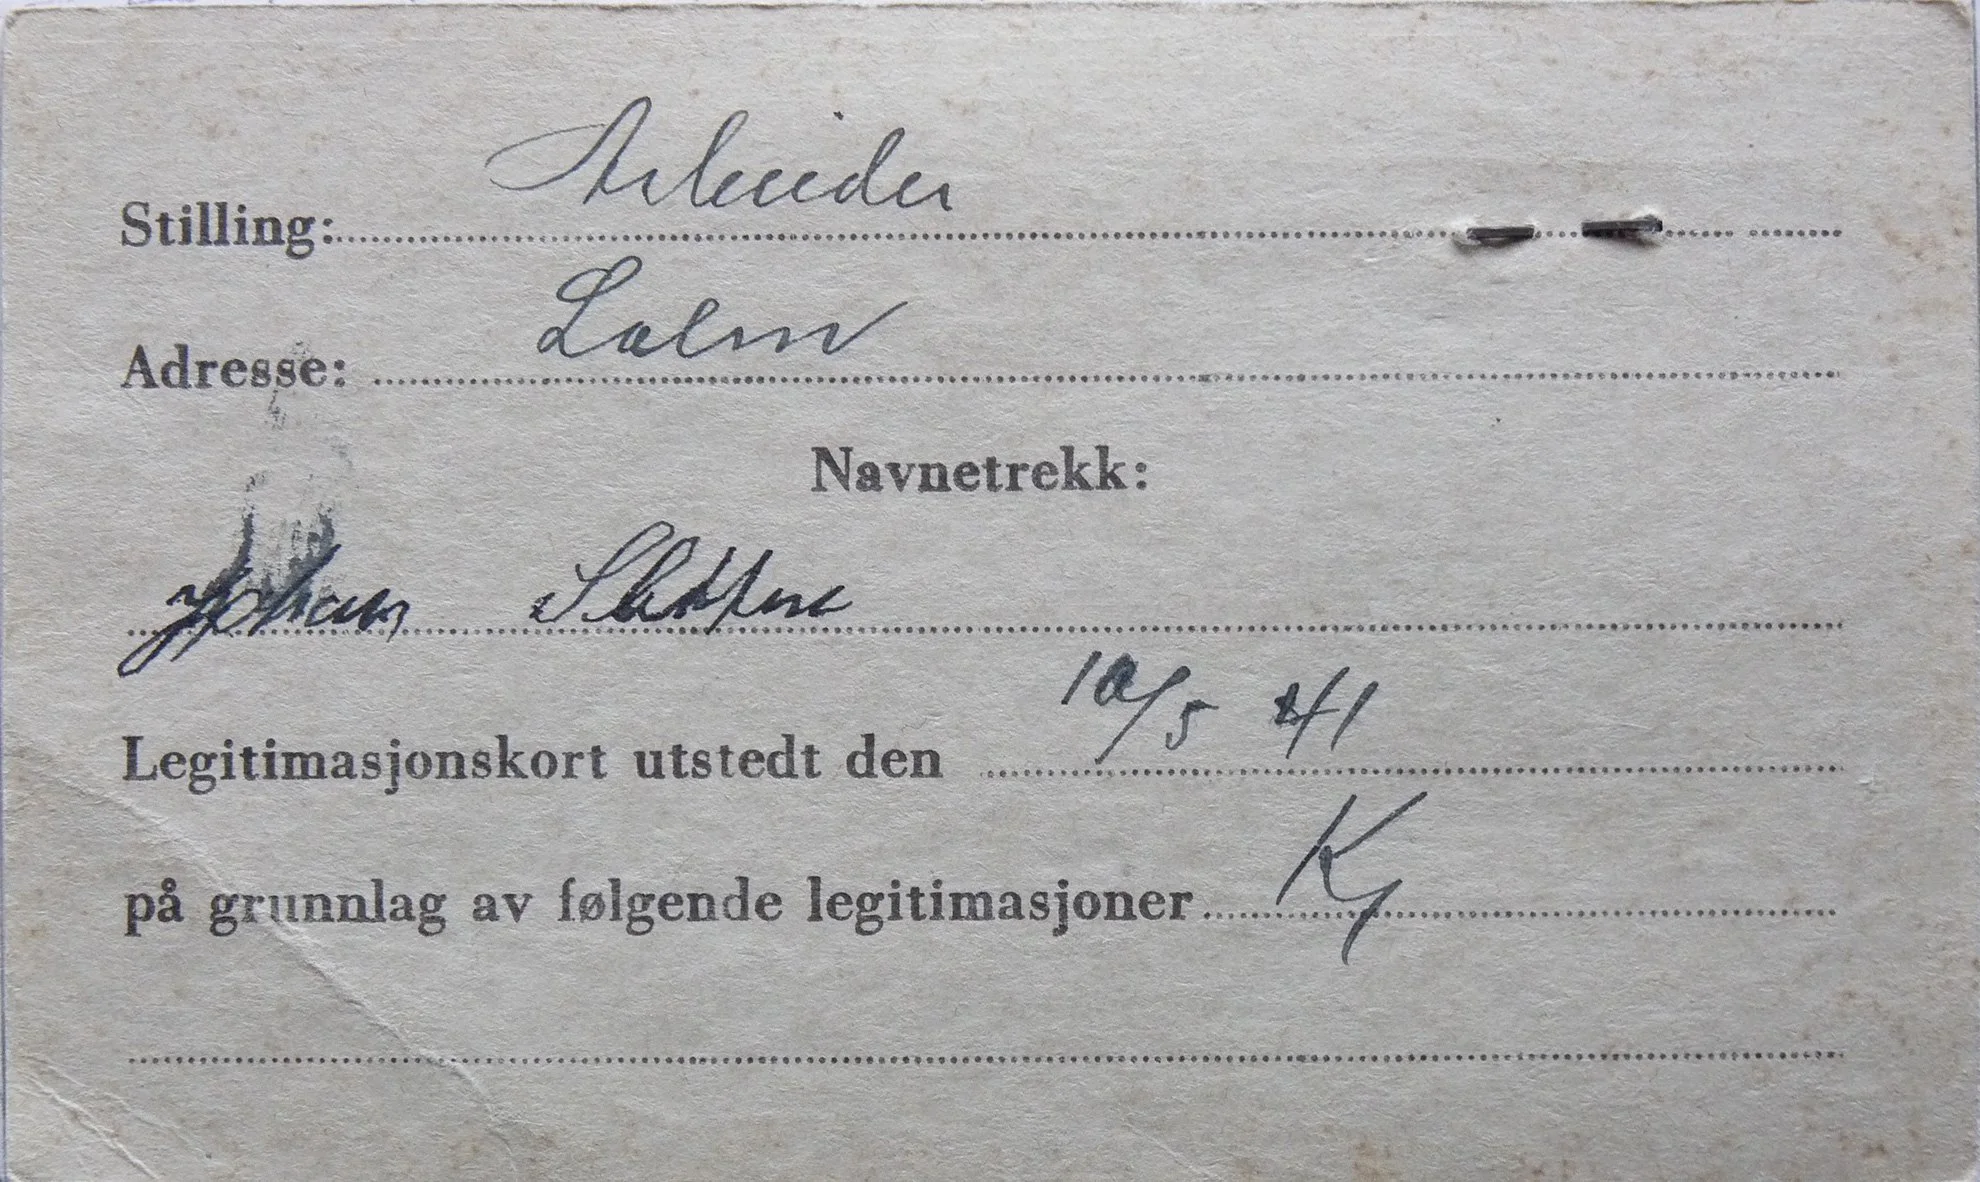 Stilling: Arbeider
Adresse: Lalm
Navnetrekk:
Johan
Legitimasjonskort utstedt den 10/5 41
på grunnlag av følgende legitimasjoner